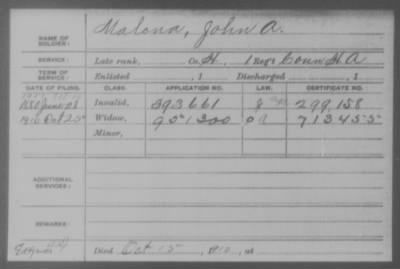 NAME OF SOLDIER: Malona, John A.
SERVICE: Late rank, Co. H. 1 Reg't Conn H. A
TERM OF SERVICE: Enlisted , 1 Discharged , 1
DATE OF FILING. CLASS. APPLICATION NO. LAW. CERTIFICATE NO.
1880 June 08 Invalid, 393661 299,158
1910 Oct 25 Widow, 951300 713455
Minor,
ADDITIONAL SERVICES:
REMARKS:
Died Oct 15 , 1910, at